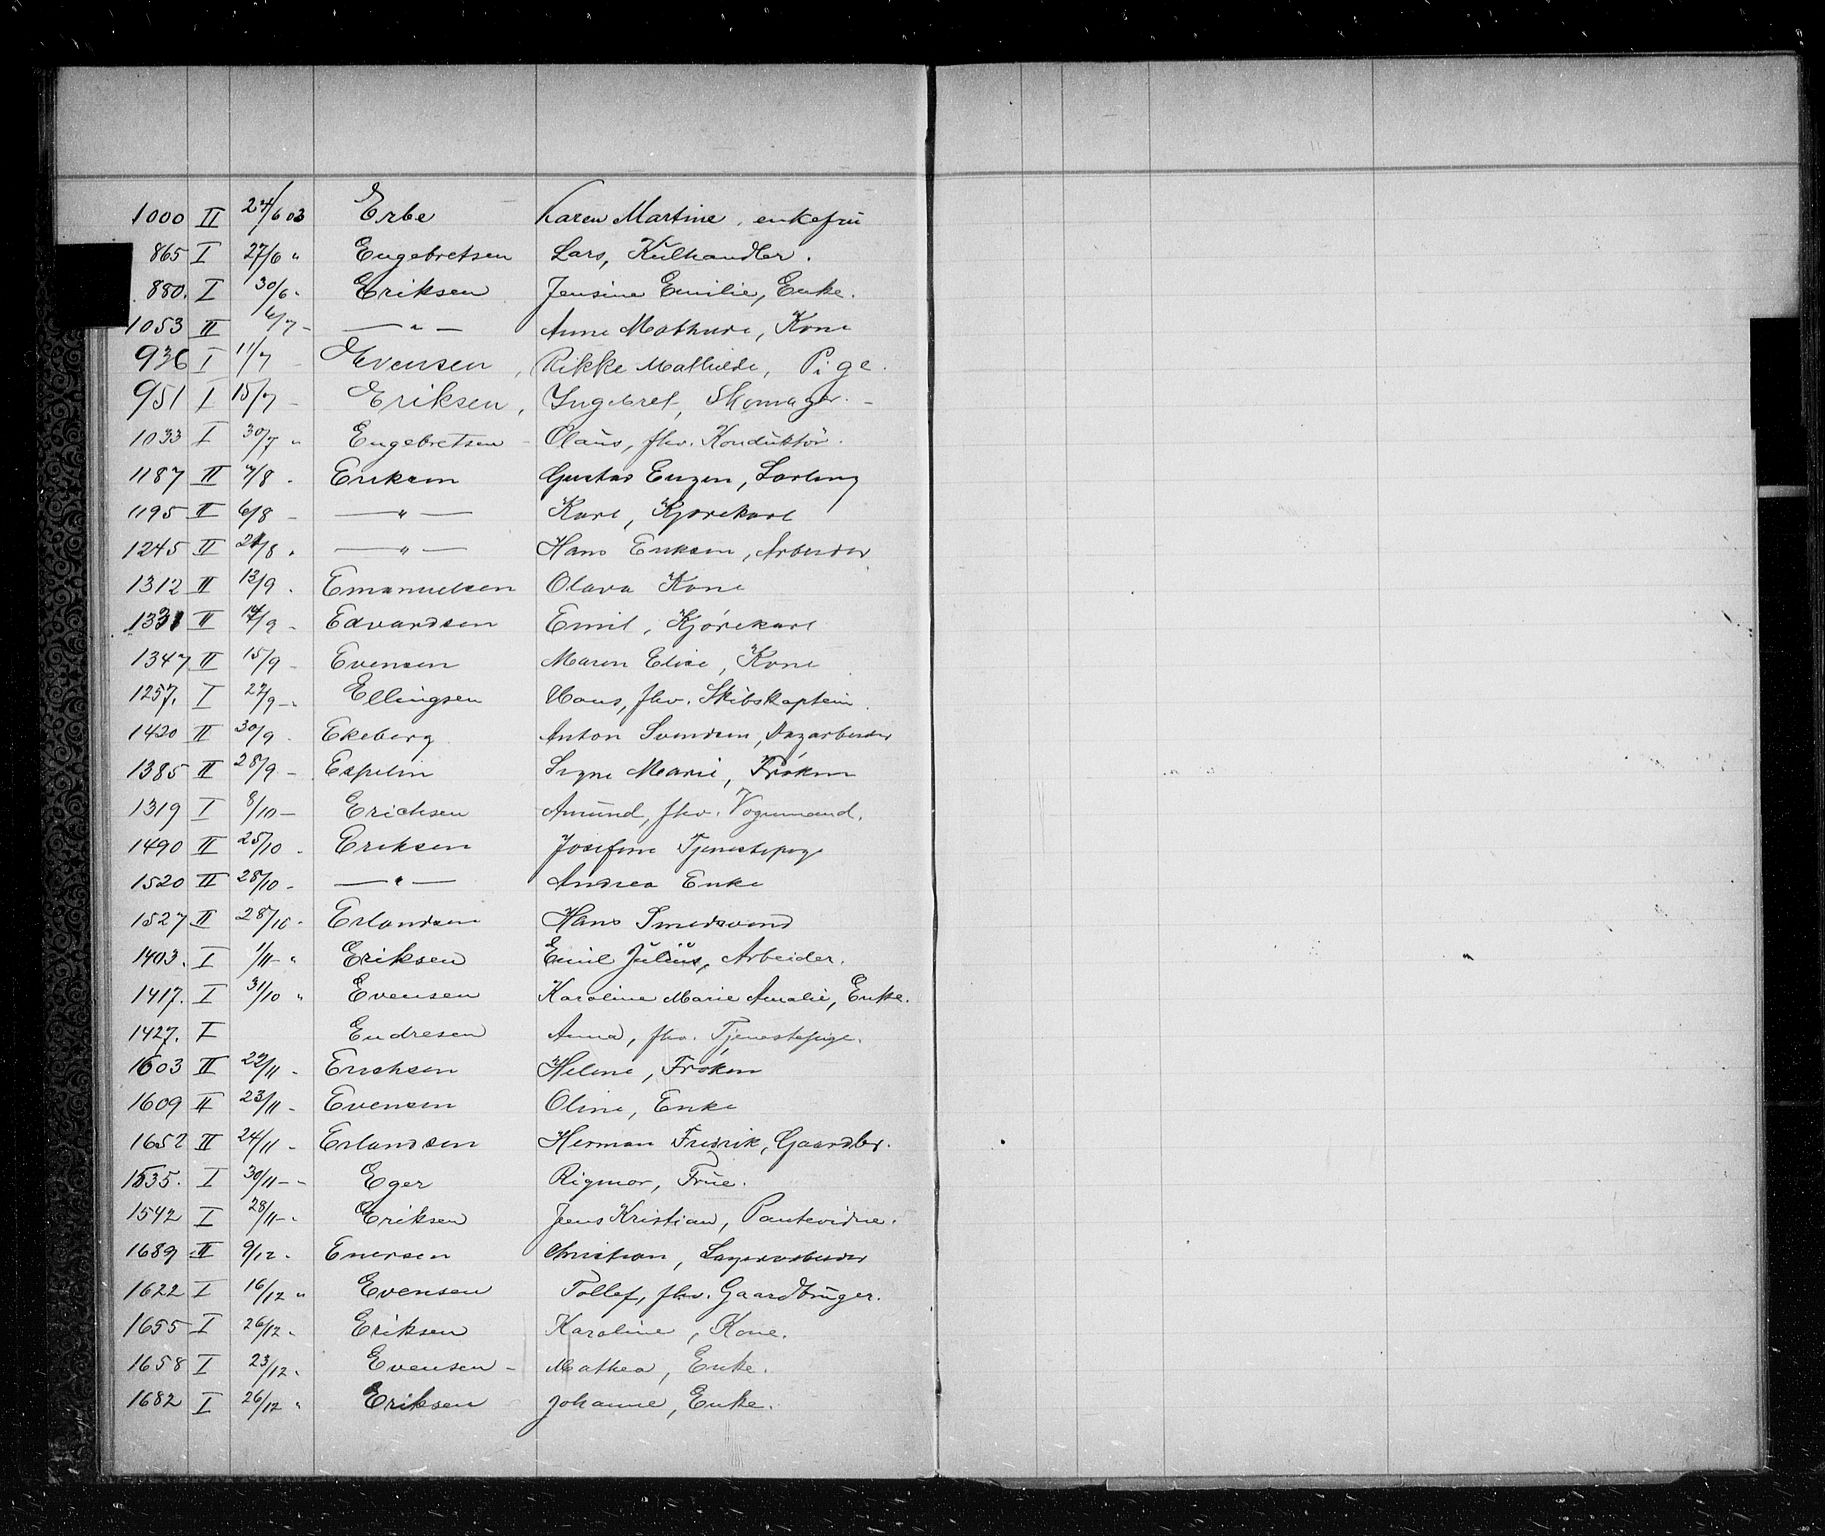 1000 II 24/6 03 Erbe Karen Martine, enkefru
865 I 27/6 " Engebretsen Lars, Kulhandler.
880. I 30/6 - Eriksen Jensine Emilie, Enke.
1053 II 6/7 - —"— Anne Mathea, Kone
936 I 11/7 - Evensen, Rikke Mathilde, Pige.
951 I 15/7 - Eriksen, Ingebret, Skomager. -
1033 I 30/7 " Engebretsen - Olaus, fhv. Konduktør.
1187 II 7/8 - Eriksen Gustav Eugen, Lærling
1195 II 6/8 - —"— Karl, Kjørekarl
1245 II 21/8 . —"— Hans Eriksen, Arbeider
1312 II 13/9 . Emanuelsen Olava Kone
1331 II 14/9 - Edvardsen Emil, Kjørekarl
1347 II 15/9 - Evensen Maren Elise, Kone
1257. I 27/9 - " Ellingsen Hans, fhv. Skibskaptein.
1420 II 30/9 . Ekeberg Anton Svendsen, Dagarbeider
1385 II 28/9 - Espelin Signe Marie, Frøken
1319 I 8/10 - Erichsen Amund, fhv. Vognmand.
1490 II 25/10 . Eriksen Josefine Tjenestepige
1520 II 28/10 - —"— Andrea Enke
1527 II 28/10 - Erlandsen Hans Smedsvend
1403. I 1/11 - " Eriksen Emil Julius, Arbeider.
1417. I 31/10 " Evensen Karoline Marie Amalie, Enke.
1427. I Endresen Anna, fhv. Tjenestepige.
1603 II 22/11 - Erichsen Helene, Frøken
1609 II 23/11 - Evensen Oline, Enke
1652 II 24/11 - Erlandsen Herman Fredrik, Gaardbr.
1535. I 30/11 - - Eger Rigmor, Frue.
1542 I 28/11 - " Eriksen Jens Kristian, Pantevidne.
1689 II 9/12 . Enersen Christian, Lagerarbeider
1622 I 16/12 " Evensen Tollef, fhv. Gaardbruger.
1655 I 26/12 " Eriksen Karoline, Kone.
1658 I 23/12 " Evensen - Mathea, Enke.
1682 I 26/12 " Eriksen Johanne, Enke.